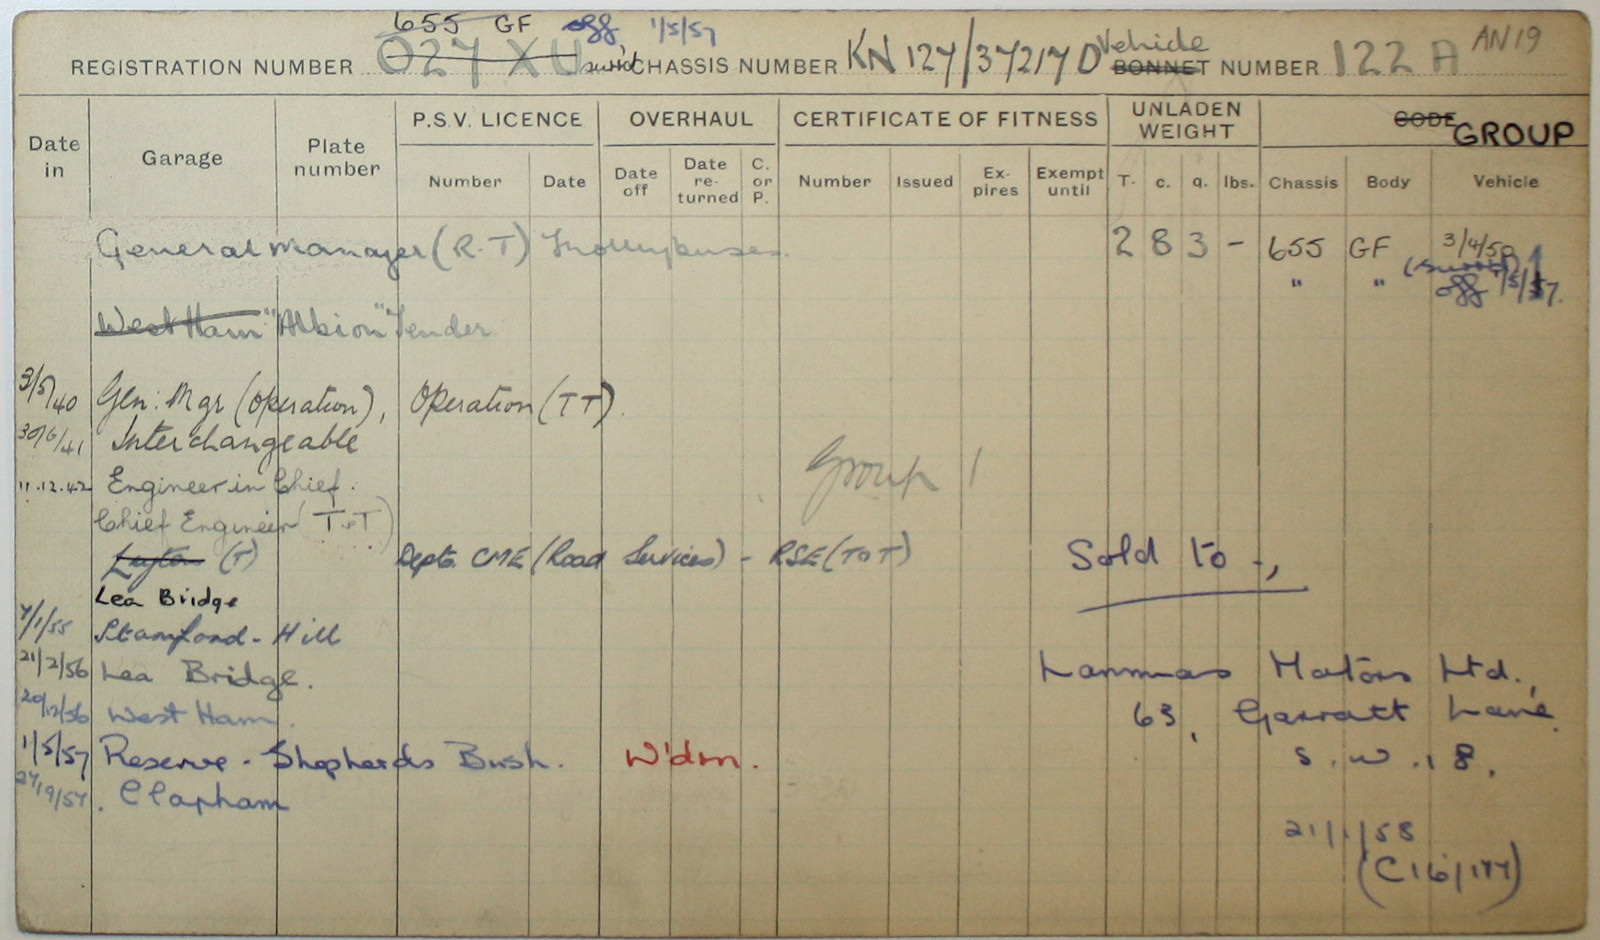 655 GF off 1/5/57
REGISTRATION NUMBER 027 XU surr'd CHASSIS NUMBER KN 127/37217 D Vehicle BONNET NUMBER 122 A AN 19
Date in Garage Plate number P.S.V. LICENCE OVERHAUL CERTIFICATE OF FITNESS UNLADEN WEIGHT CODE GROUP
Number Date Date off Date re-turned C. or P. Number Issued Ex-pires Exempt until T. c. q. lbs. Chassis Body Vehicle
General Manager (R.T) Trolleybuses. 2 8 3 - 655 GF 3/4/50
" " off 1/5/57.
West Ham "Albion" Tender
3/5/40 Gen: Mgr (Operation), Operation (TT).
30/6/41 Interchangeable
Group 1
11.12.42 Engineer in Chief.
Chief Engineer (T.T)
Leyton (T) Dept. CME (Road Services) - RSE (ToT) Sold to -,
Lea Bridge
7/1/55 Stamford - Hill
21/2/56 Lea Bridge. Lammas Motors Ltd.,
20/12/56 West Ham. 63, Garratt Lane
1/5/57 Reserve - Shepherds Bush. W'dn. S.W.18.
27/9/57. Clapham
21/1/58
(C16/177)